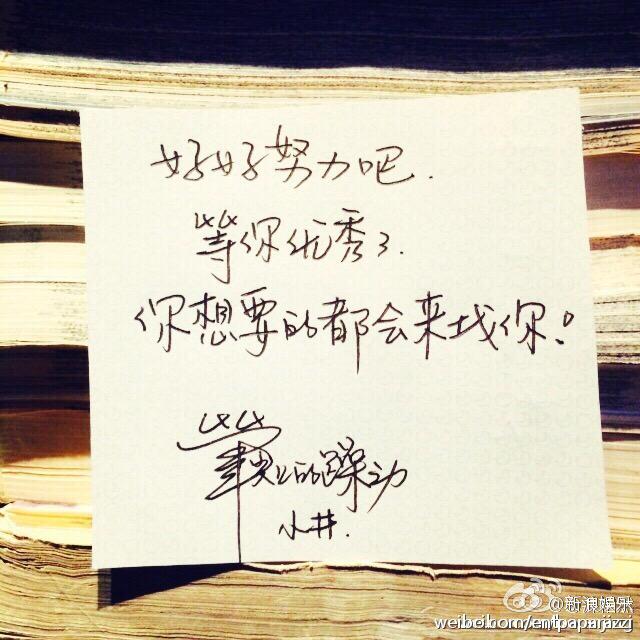 好好努力吧.
等你优秀了.
你想要的都会来找你!
笔尖上的躁动
小井.
@新浪娱乐
weibo.com/entpaparazzi